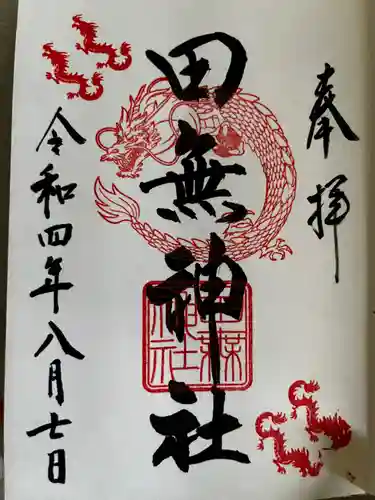 奉拝
田無神社
令和四年八月七日
田無神社